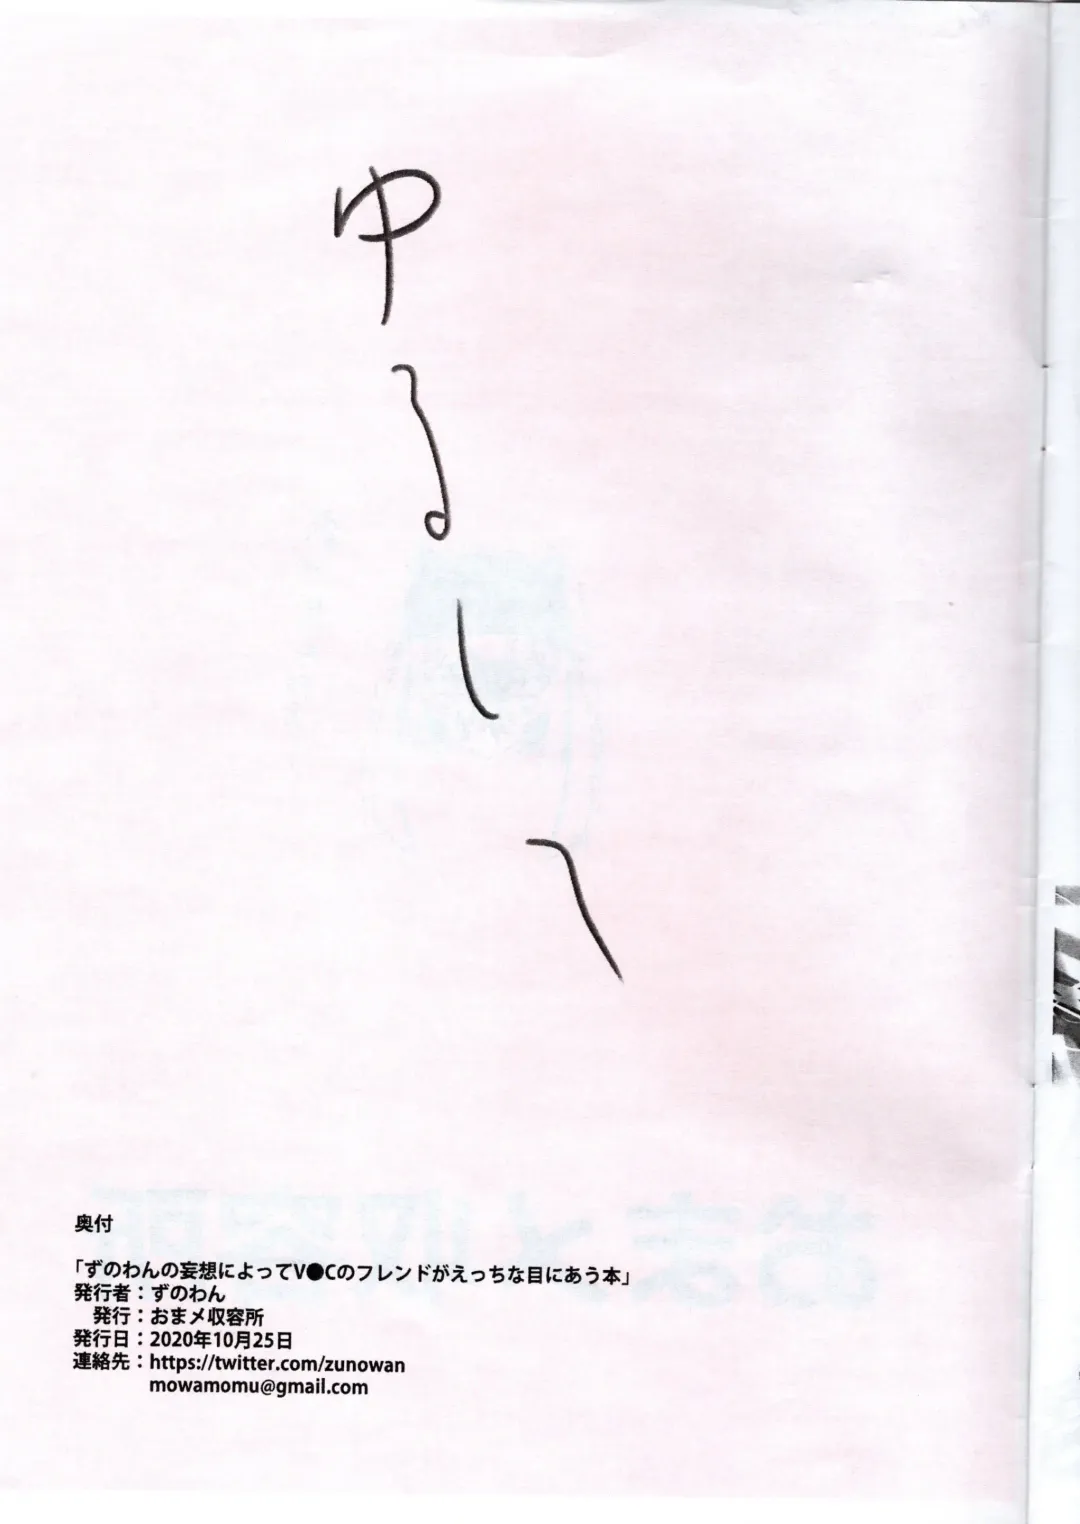 ゆるして
奥付
「ずのわんの妄想によってV●Cのフレンドがえっちな目にあう本」
発行者：ずのわん
発行：おまメ収容所
発行日：2020年10月25日
連絡先：https://twitter.com/zunowan
mowamomu@gmail.com
おまメ収容所